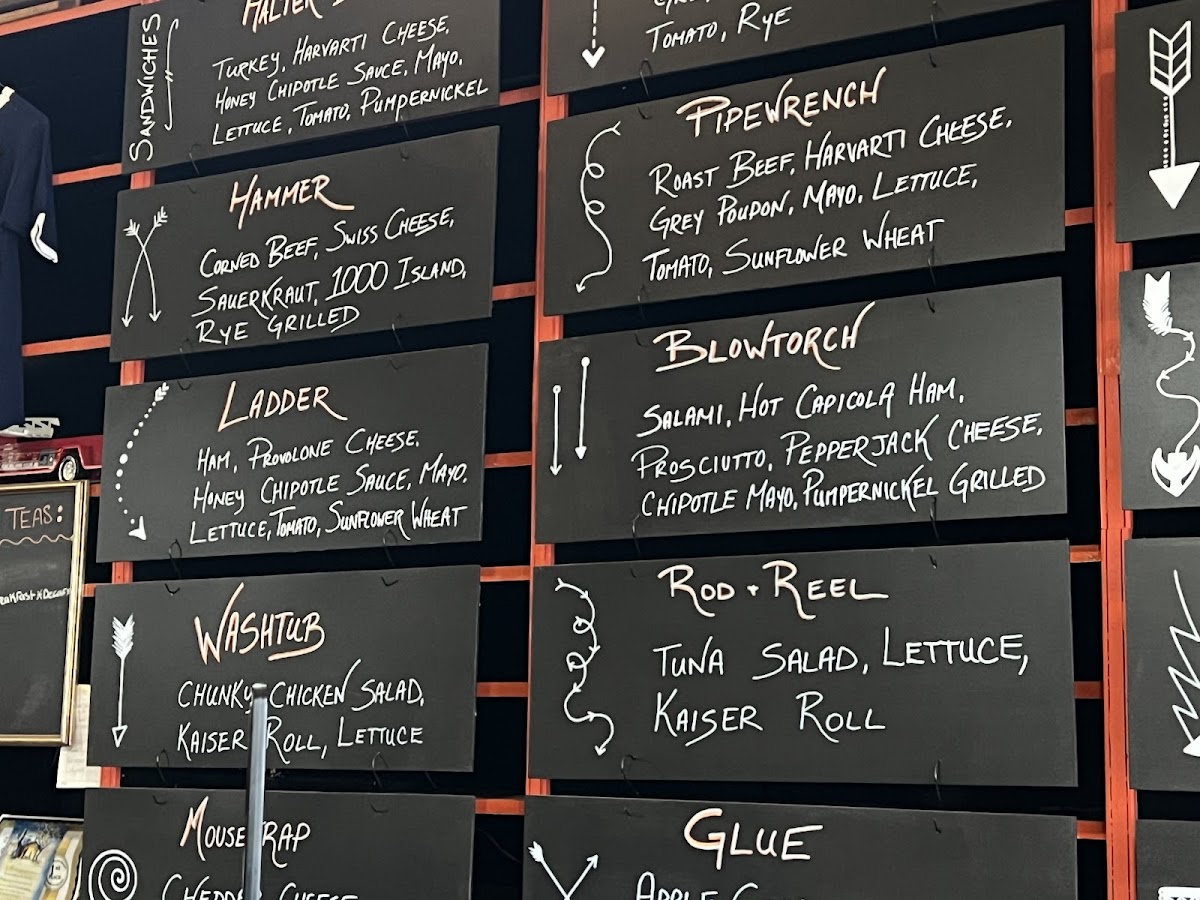 SANDWICHES
HALTER
TURKEY, HARVARTI CHEESE,
HONEY CHIPOTLE SAUCE, MAYO,
LETTUCE, TOMATO, PUMPERNICKEL
HAMMER
CORNED BEEF, SWISS CHEESE,
SAUERKRAUT, 1000 ISLAND,
RYE GRILLED
LADDER
HAM, PROVOLONE CHEESE,
HONEY CHIPOTLE SAUCE, MAYO,
LETTUCE, TOMATO, SUNFLOWER WHEAT
WASHTUB
CHUNKY CHICKEN SALAD,
KAISER ROLL, LETTUCE
MOUSETRAP
CHEDDER CHEESE
TOMATO, RYE
PIPEWRENCH
ROAST BEEF, HARVARTI CHEESE,
GREY POUDON, MAYO, LETTUCE,
TOMATO, SUNFLOWER WHEAT
BLOWTORCH
SALAMI, HOT CAPICOLA HAM,
PROSCIUTTO, PEPPERJACK CHEESE,
CHIPOTLE MAYO, PUMPERNICKEL GRILLED
ROD + REEL
TUNA SALAD, LETTUCE,
KAISER ROLL
GLUE
APPLE
TEAS: